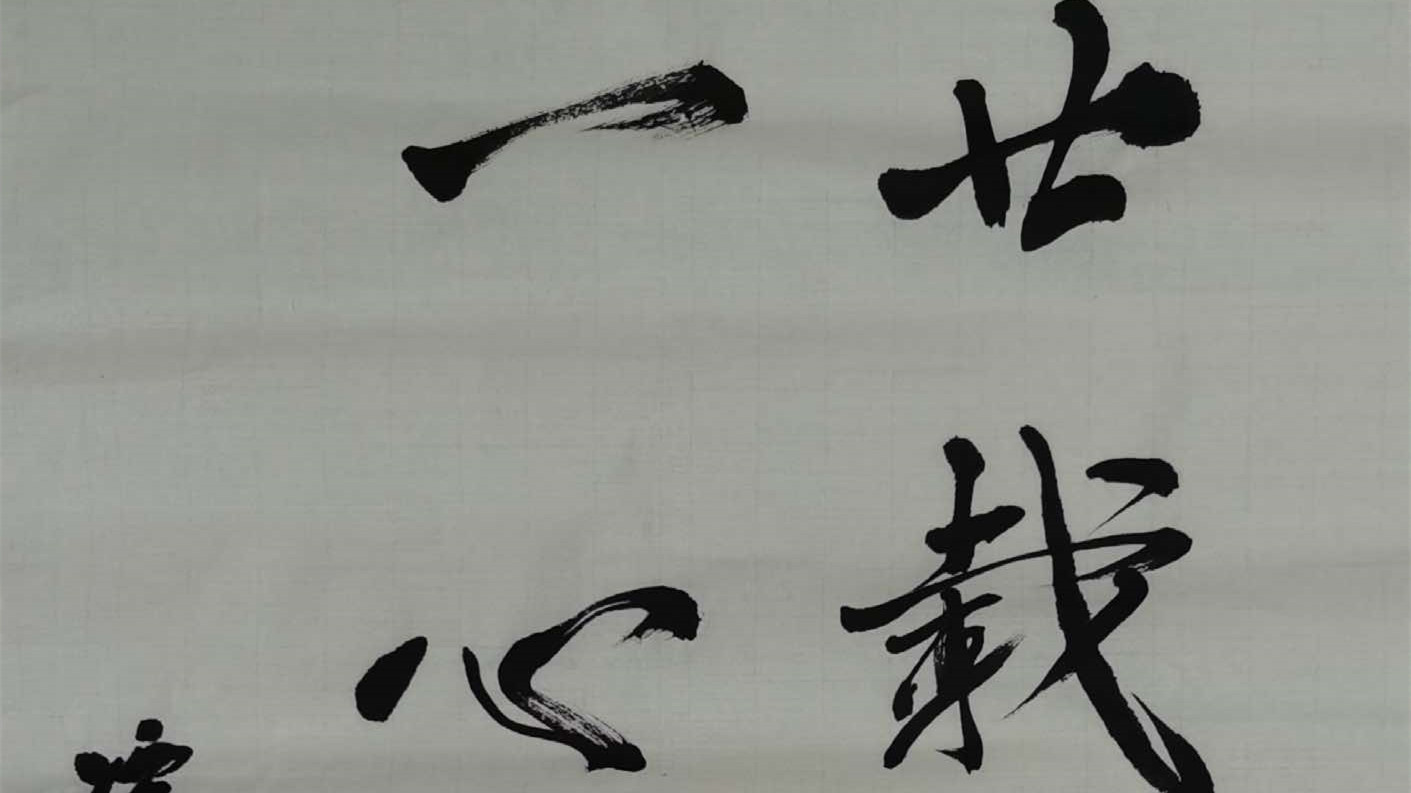 廿載
一心